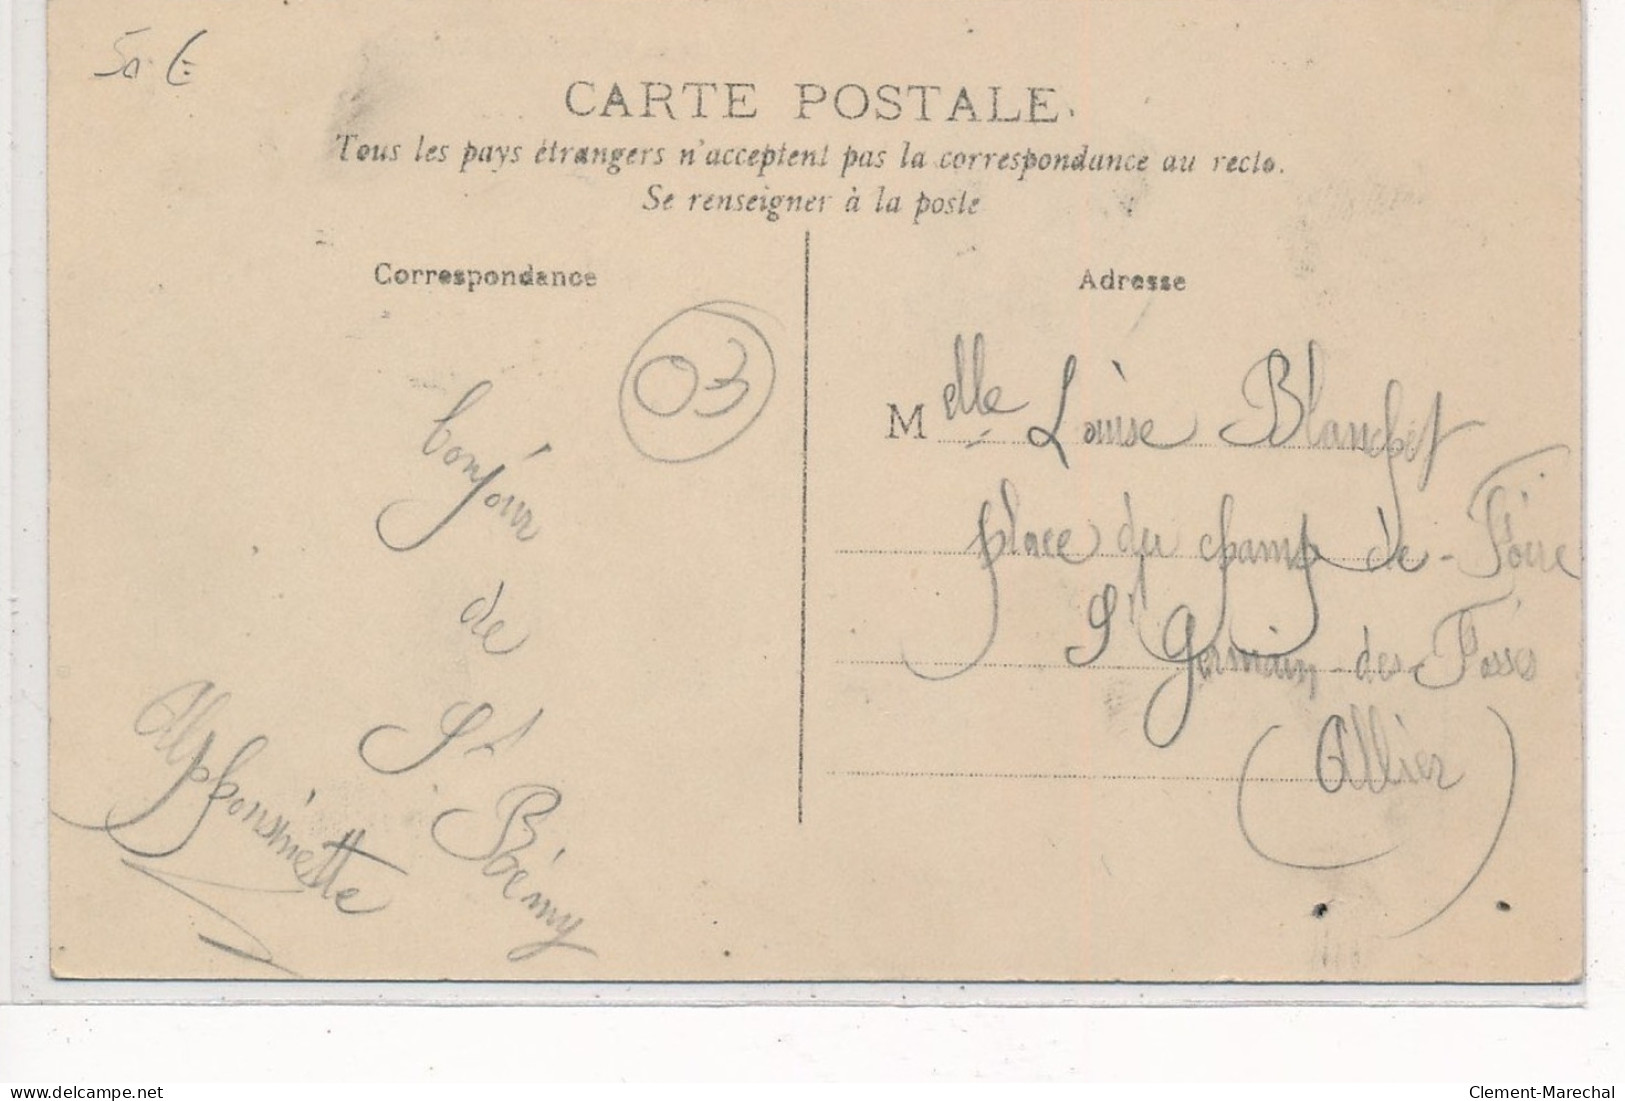 50 €
CARTE POSTALE.
Tous les pays étrangers n'acceptent pas la correspondance au recto.
Se renseigner à la poste
Correspondance
03
bonjour
de
St
Rémy
Alphonsinette
Adresse
Melle Louise Blanchet
place du champ de-Foire
St Germain-des-Fossés
(Allier)
www.delcampe.net
Clement-Marechal